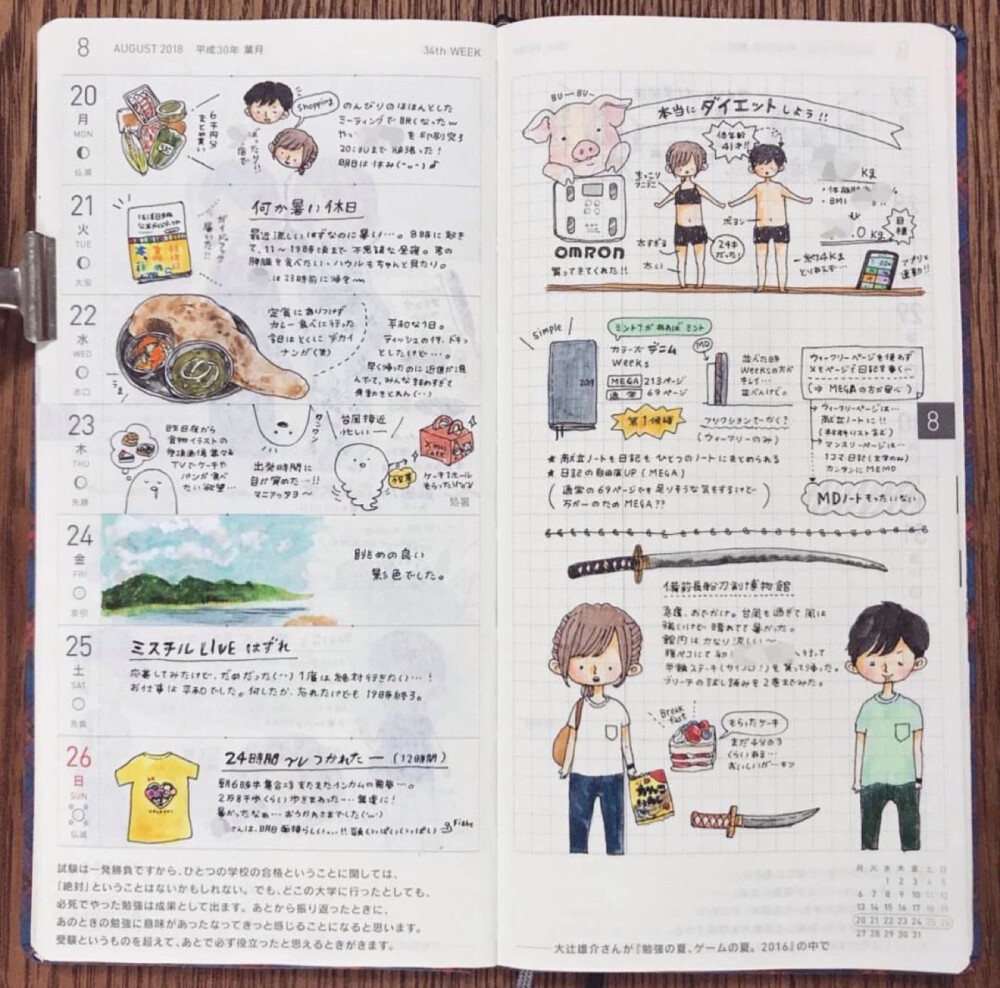 8 AUGUST 2018 平成30年 葉月 34th WEEK
20
月
MON
仏滅
6千円分
まとめ買い
Shopping
のんびりのほほんとした
ミーティングで眠くなったw
を印刷完了
20:30まで頑張った!
明日は休み(-ω-)♪
21
火
TUE
大安
ガイドブック
届いた!!
何か暑い休日
最近涼しいはずなのに暑い…。8時に起き
て、11〜19時頃まで不思議な昼寝。君の
膵臓を食べたい・ハウルもちゃんと見たり。
は23時前に帰宅〜
22
水
WED
赤口
定食にありつけず
カレー食べに行った
今日はとくにデカイ
ナンが(笑)
平和な1日。
ティッシュの件、ドキッ
としたけど…。
早く帰ったのに
23
木
THU
先勝
昨日夜から
食物イラストの
TVでケーキや
パンが食べ
たい欲望…
出発時間に
目が覚めた…!!
マニアックヨ〜
台風接近
忙しい
X'mas
CAKE
ケーキ1ホール
もらったけどww
処暑
24
金
FRI
友引
眺めの良い
景色でした。
25
土
SAT
先負
ミスチル LIVE はずれ
応募してみたけど、だめだった(..) 1度は絶対行きたい…!
お仕事は平和でした。何したか、忘れたけども19時終了。
26
日
SUN
仏滅
24時間TV つかれたー (12時間)
朝6時半集合
2万8千歩くらい歩きまわった…無理に!
暑かったなぁ…おつかれさまでした
さんは、明日面接らしい…!!
試験は一発勝負ですから、ひとつの学校の合格ということに関しては、
「絶対」ということはないかもしれない。でも、どこの大学に行ったとしても、
必死でやった勉強は成果として出ます。あとから振り返ったときに、
あのときの勉強に意味があったなってきっと感じることになると思います。
受験というものを超えて、あとで必ず役立ったと思えるときがきます。
BU—BU—
本当にダイエットしよう!!
OMRON
買ってきてくれた!!
体年齢
41才!!
太すぎる
太い
24才
だった!
kg
・BMI
.0 kg
目標
一約4kg
アプリと
連動!!
simple
2019
ミント?があればミント
カラーズ デニム
Weeks
MEGA 213ページ
通常 69ページ
第1候補
MD
並んだ時
Weeksの方が
キレイ…
並べたけど。
フリクションでかく?
(ウィークリーのみ)
ウィークリーページを使わず
メモページで日記を書く…
(⇒ MEGAの方が安心)
ウィークリーページは…
献立ノートに!!
マンスリーページは…
1コマ日記(文字のみ)
カンタンにMEMO
MDノートもったいない
8
★ 献立ノートも日記もひとつのノートにまとめられる
★ 日記の自由度UP (MEGA)
(通常の69ページでも足りそうな気もするけど…
万が一のためMEGA??)
備前長船刀剣博物館
急遽、おでかけ。台風も過ぎて風は
強いけど晴れてて暑かった。
館内はかなり涼しい〜
行って
半額ステーキ(サイコロ!)を買って帰った。
ブリーチの試し読みを2巻まで見た。
Break
fast
もらったケーキ
まだ4分の3
くらいある…
おいしいがーキツ
月 火 水 木 金 土 日
1 2 3 4 5
6 7 8 9 10 11 12
13 14 15 16 17 18 19
20 21 22 23 24 25 26
27 28 29 30 31
——大辻雄介さんが『勉強の夏、ゲームの夏。2016』の中で